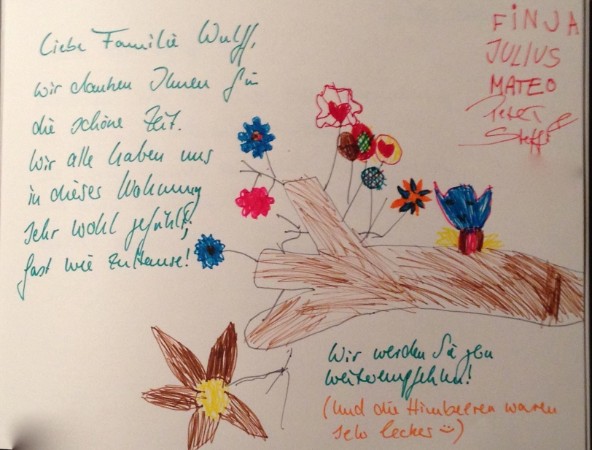 Liebe Familie Wulff,
wir danken Ihnen für
die schöne Zeit.
Wir alle haben uns
in dieser Wohnung
sehr wohl gefühlt,
fast wie zuHause!
FINJA
JULIUS
MATEO
Peter &
Steffi
Wir werden Sie gern
weiterempfehlen!
(Und die Himbeeren waren
sehr lecker :))